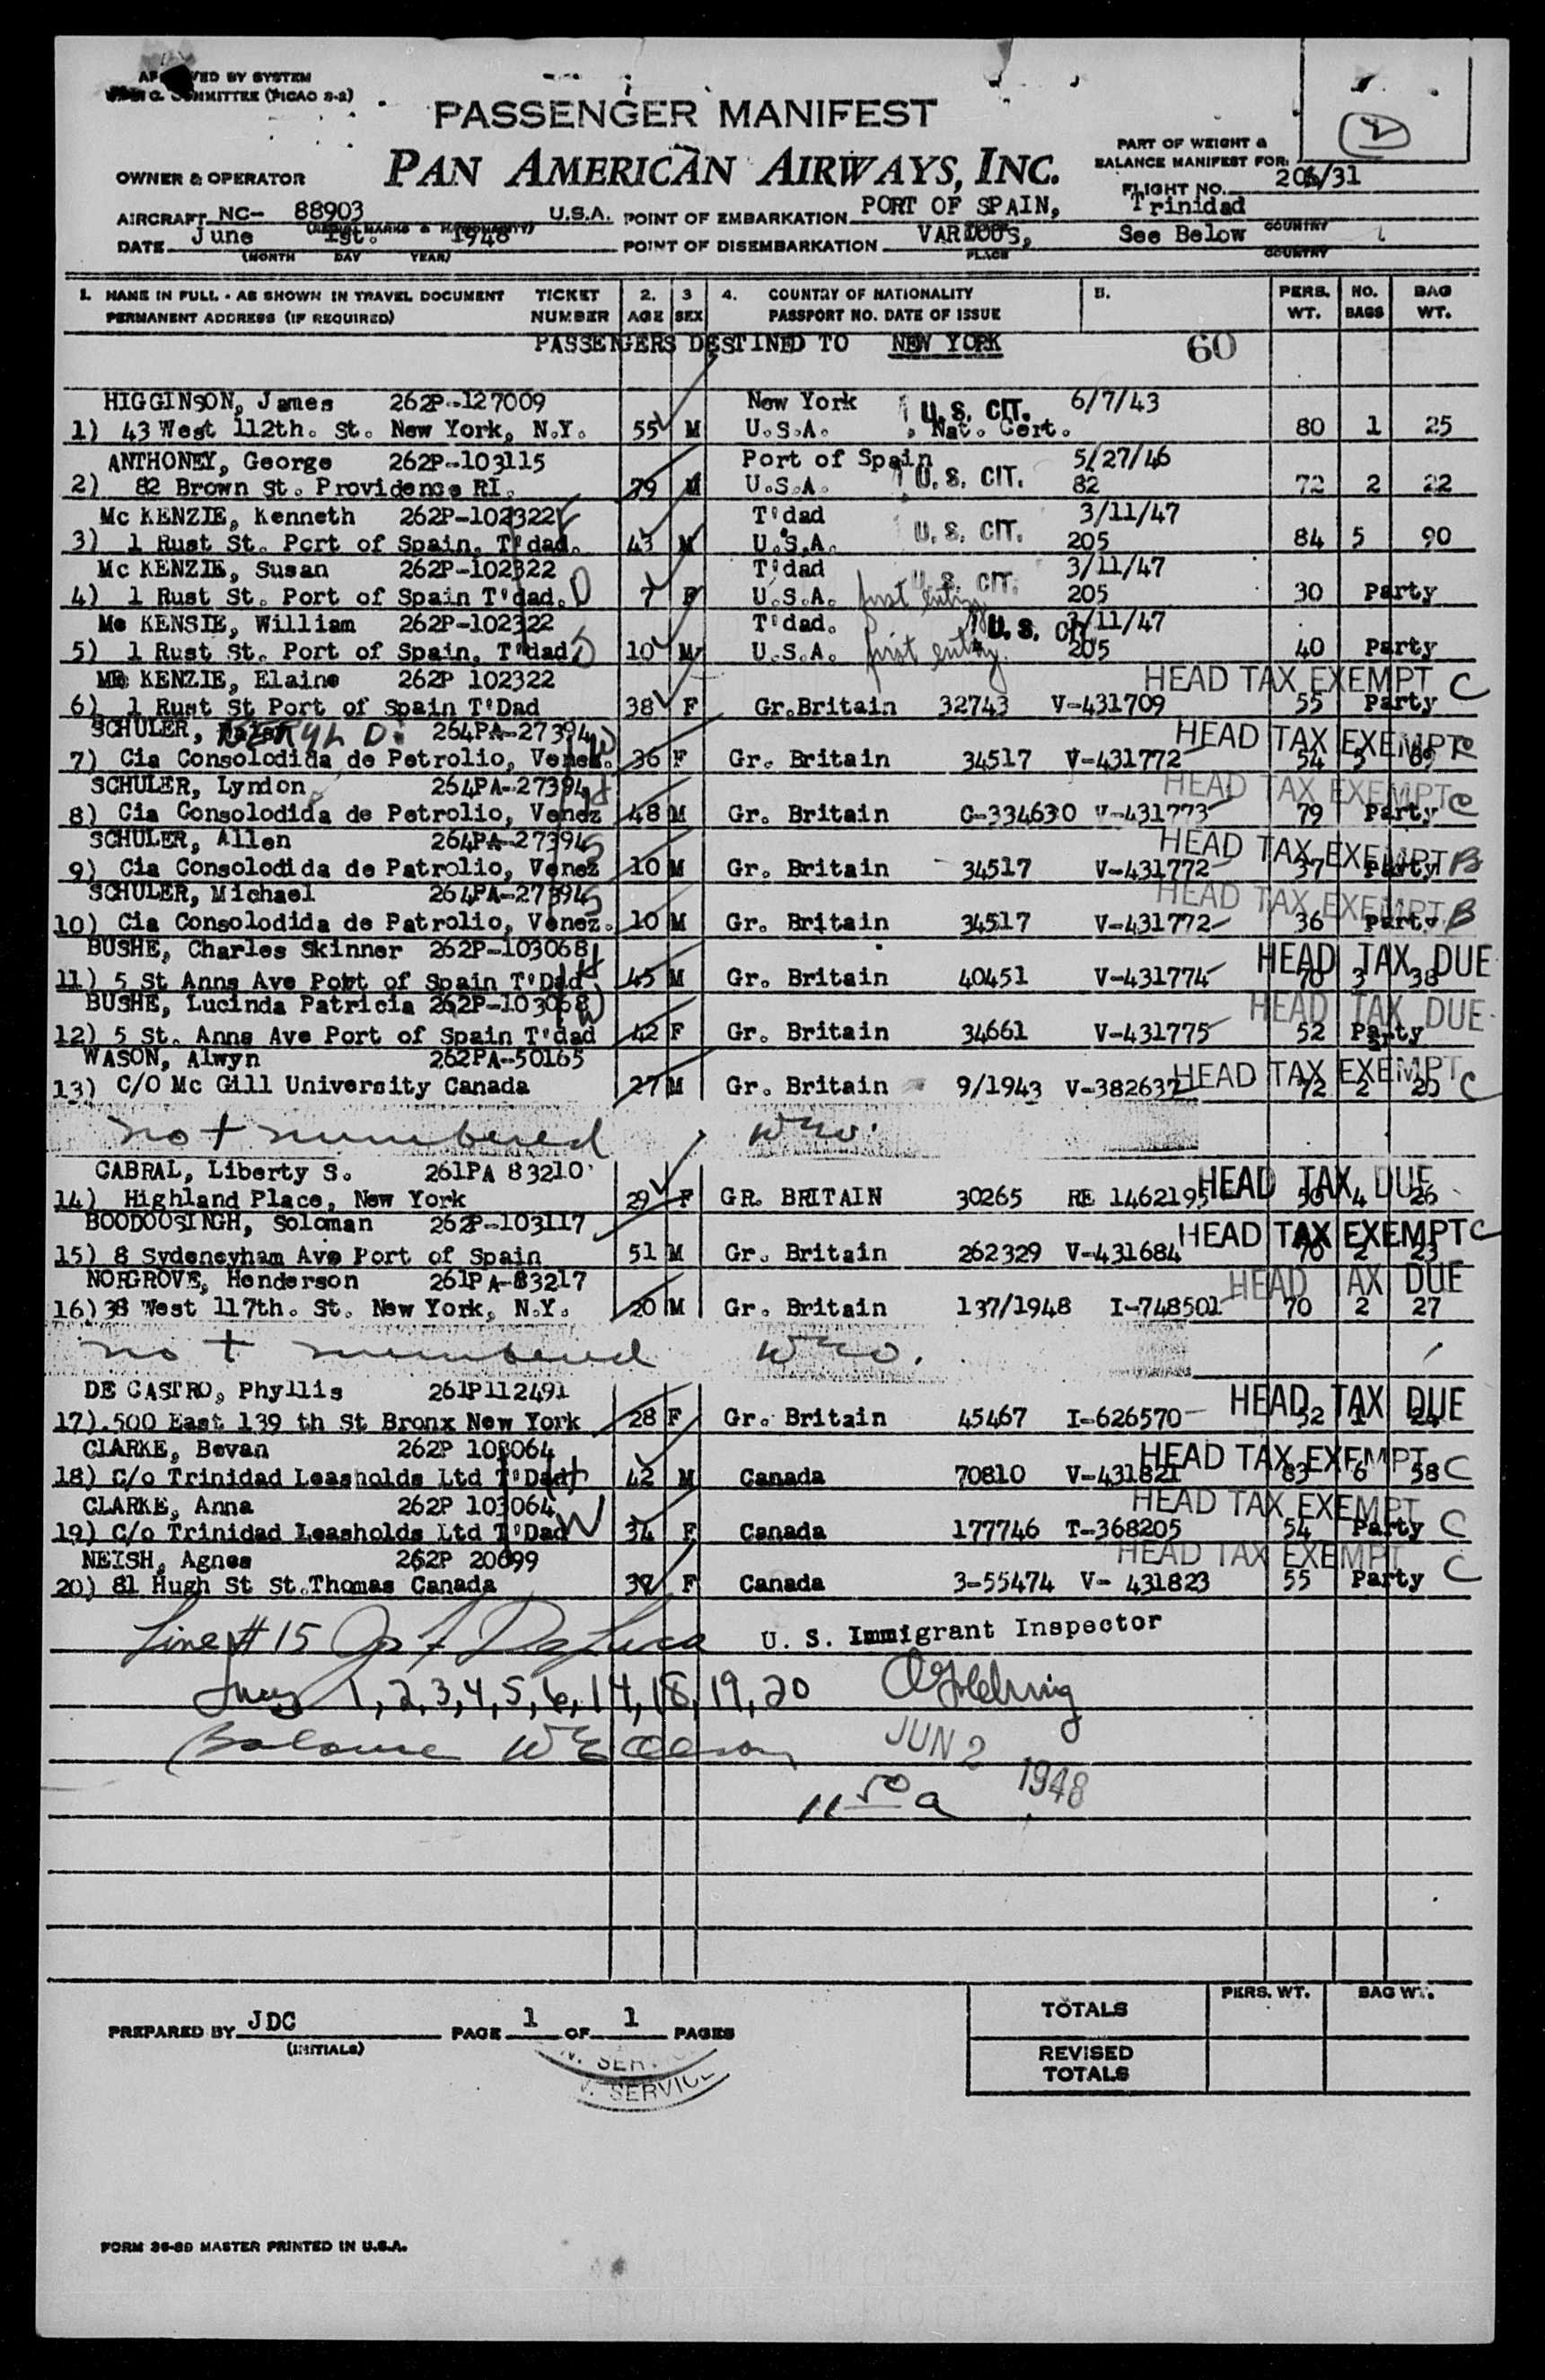 PASSENGER MANIFEST
PAN AMERICAN AIRWAYS, INC.
PART OF WEIGHT &
BALANCE MANIFEST FOR:
OWNER & OPERATOR
FLIGHT NO. 206/31
AIRCRAFT NC- 88903 U.S.A. POINT OF EMBARKATION PORT OF SPAIN, Trinidad
COUNTRY
DATE June 1st. 1948 POINT OF DISEMBARKATION VARIOUS, See Below
(MONTH DAY YEAR) PLACE COUNTRY
1. NAME IN FULL - AS SHOWN IN TRAVEL DOCUMENT TICKET 2. 3 4. COUNTRY OF NATIONALITY PERS. NO. BAG
PERMANENT ADDRESS (IF REQUIRED) NUMBER AGE SEX PASSPORT NO. DATE OF ISSUE WT. BAGS WT.
PASSENGERS DESTINED TO NEW YORK 60
HIGGINSON, James 262P-127009 New York U.S. CIT. 6/7/43
1) 43 West 112th. St. New York, N.Y. 55 M U.S.A. Nat. Cert. 80 1 25
ANTHONEY, George 262P-103115 Port of Spain 5/27/46
2) 82 Brown St. Providence RI. 29 M U.S.A. U.S. CIT. 82 72 2 22
Mc KENZIE, Kenneth 262P-102322 T'dad 3/11/47
3) 1 Rust St. Port of Spain, T'dad. 43 M U.S.A. U.S. CIT. 205 84 5 90
Mc KENZIE, Susan 262P-102322 D T'dad U.S. CIT. 3/11/47
4) 1 Rust St. Port of Spain T'dad. 7 F U.S.A. first entry 205 30 Party
Mc KENSIE, William 262P-102322 T'dad. U.S. CIT. 3/11/47
5) 1 Rust St. Port of Spain, T'dad S 10 M U.S.A. first entry. 205 40 Party
Mc KENZIE, Elaine 262P 102322 HEAD TAX EXEMPT C
6) 1 Rust St Port of Spain T'Dad 38 F Gr.Britain 32743 V-431709 55 Party
SCHULER, BERYL D. 264PA-27394 W HEAD TAX EXEMPT C
7) Cia Consolodida de Petrolio, Venez. 36 F Gr. Britain 34517 V-431772 54 5 89
SCHULER, Lyndon 264PA-27394 H HEAD TAX EXEMPT C
8) Cia Consolodida de Petrolio, Venez 48 M Gr. Britain C-334630 V-431773 79 Party
SCHULER, Allen 264PA-27394 S HEAD TAX EXEMPT B
9) Cia Consolodida de Patrolio, Venez 10 M Gr. Britain 34517 V-431772 37 Party
SCHULER, Michael 264PA-27394 S HEAD TAX EXEMPT B
10) Cia Consolodida de Patrolio, Venez. 10 M Gr. Britain 34517 V-431772 36 Party
BUSHE, Charles Skinner 262P-103068 H HEAD TAX DUE
11) 5 St Anns Ave Port of Spain T'Dad 45 M Gr. Britain 40451 V-431774 70 3 38
BUSHE, Lucinda Patricia 262P-103068 W HEAD TAX DUE
12) 5 St. Anns Ave Port of Spain T'dad 42 F Gr. Britain 34661 V-431775 52 Party
WASON, Alwyn 262PA-50165 HEAD TAX EXEMPT C
13) C/O Mc Gill University Canada 27 M Gr. Britain 9/1943 V-382637 72 2 23
not numbered
CABRAL, Liberty S. 261PA 83210 HEAD TAX DUE
14) Highland Place, New York 29 F GR. BRITAIN 30265 RE 1462195 50 4 26
BOODOOSINGH, Soloman 262P-103117 HEAD TAX EXEMPT C
15) 8 Sydeneyham Ave Port of Spain 51 M Gr. Britain 262329 V-431684 70 2 23
NORGROVE, Henderson 261PA-83217 HEAD TAX DUE
16) 38 West 117th. St. New York, N.Y. 20 M Gr. Britain 137/1948 I-748501 70 2 27
not numbered
DE CASTRO, Phyllis 261P112491 HEAD TAX DUE
17) 500 East 139 th St Bronx New York 28 F Gr. Britain 45467 I-626570 52 1 24
CLARKE, Bevan 262P 103064 HEAD TAX EXEMPT C
18) C/o Trinidad Leasholds Ltd T'Dad H 42 M Canada 70810 V-431821 83 6 58
CLARKE, Anna 262P 103064 HEAD TAX EXEMPT C
19) C/o Trinidad Leasholds Ltd T'Dad W 34 F Canada 177746 T-368205 54 Party
NEISH, Agnes 262P 20699 HEAD TAX EXEMPT C
20) 81 Hugh St St.Thomas Canada 39 F Canada 3-55474 V- 431823 55 Party
Line # 15 U. S. Immigrant Inspector
1, 2, 3, 4, 5, 6, 14, 18, 19, 20
Balance
JUN 2 1948
11 50 a
PREPARED BY JDC PAGE 1 OF 1 PAGES
(INITIALS)
TOTALS PERS. WT. BAG WT.
REVISED
TOTALS
SERVICE
FORM 36-8D MASTER PRINTED IN U.S.A.